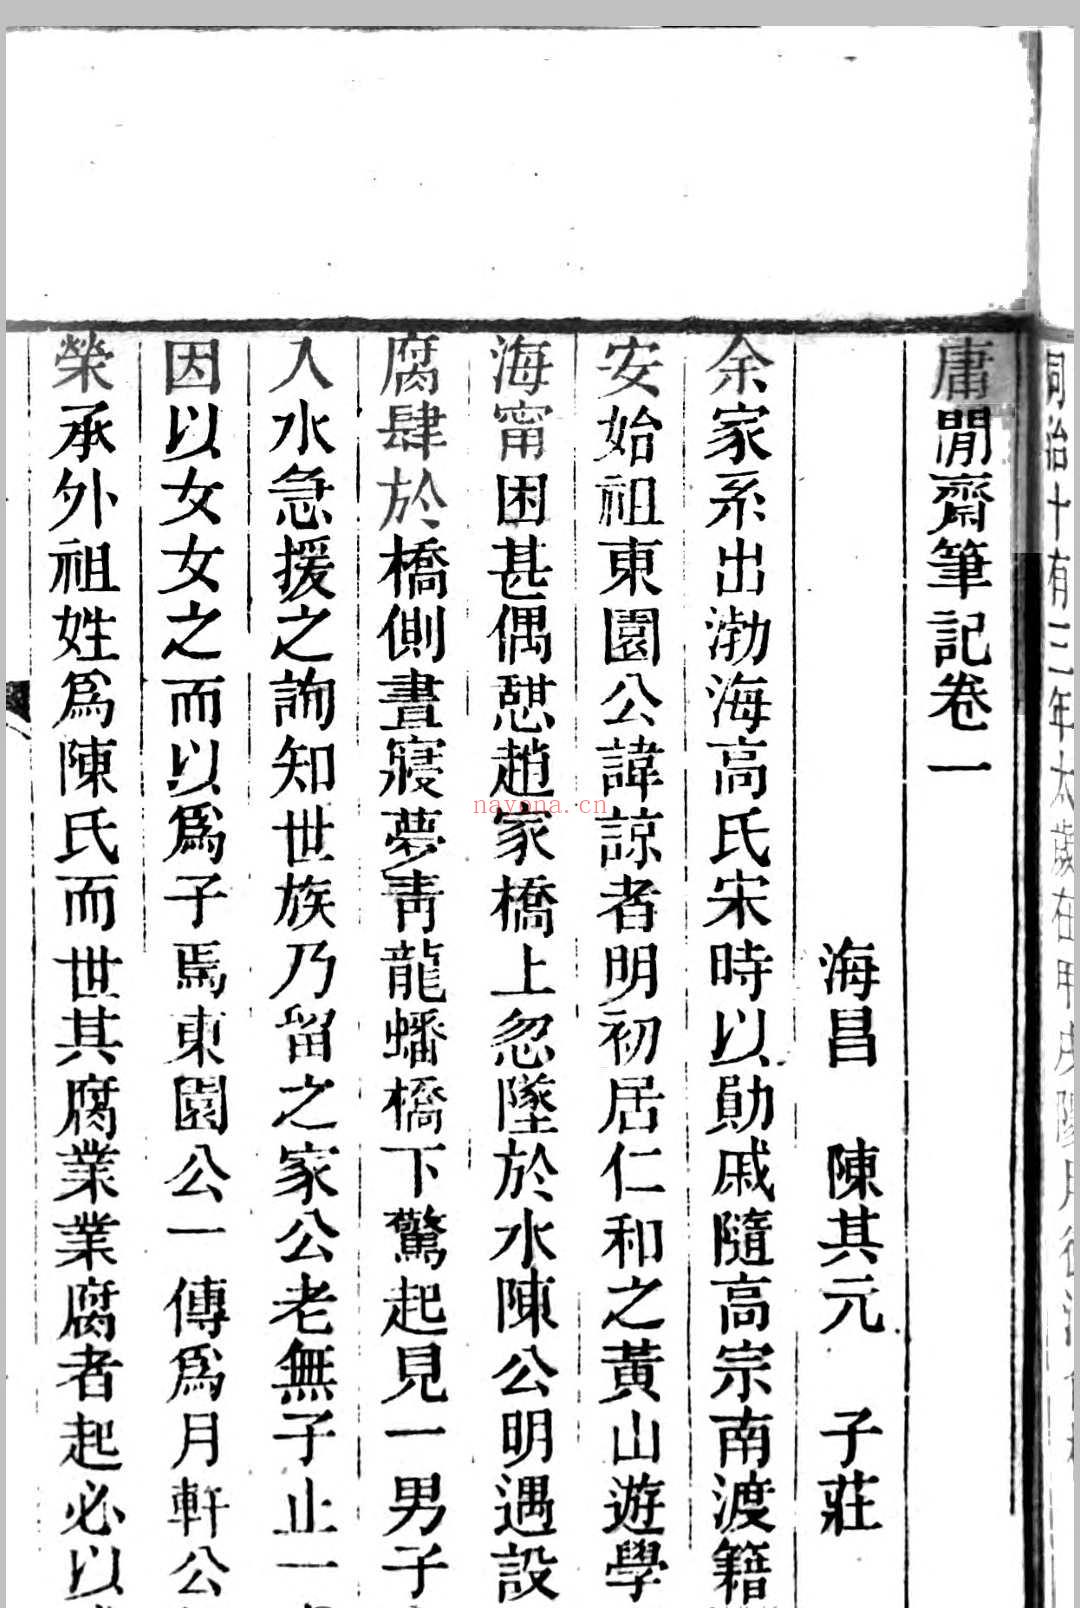 同治十有三年太歲在甲戌
庸閒齋筆記卷一
海昌 陳其元 子莊
余家系出渤海高氏宋時以勛戚隨高宗南渡籍
安始祖東園公諱諒者明初居仁和之黃山遊學
海甯困甚偶憇趙家橋上忽墜於水陳公明遇設
腐肆於橋側晝寢夢靑龍蟠橋下驚起見一男子
入水急援之詢知世族乃留之家公老無子止一
因以女女之而以爲子焉東園公一傳爲月軒公
榮承外祖姓爲陳氏而世其腐業業腐者起必以
nayona.cn